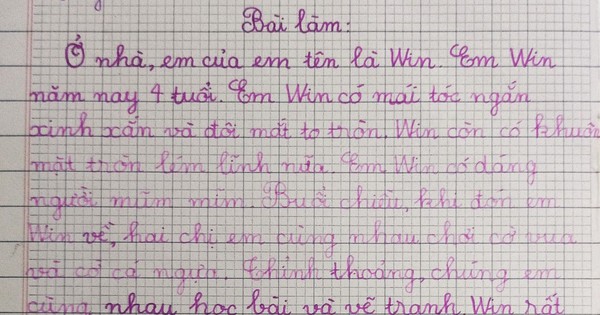 Bài làm:
Ở nhà, em của em tên là Win. Em Win
năm nay 4 tuổi. Em Win có mái tóc ngắn
xinh xắn và đôi mắt to tròn. Win còn có khuôn
mặt tròn lém lĩnh nữa. Em Win có dáng
người mũm mĩm. Buổi chiều, khi đón em
Win về, hai chị em cùng nhau chơi cờ vua
và cờ cá ngựa. Thỉnh thoảng, chúng em
cùng nhau học bài và vẽ tranh. Win rất